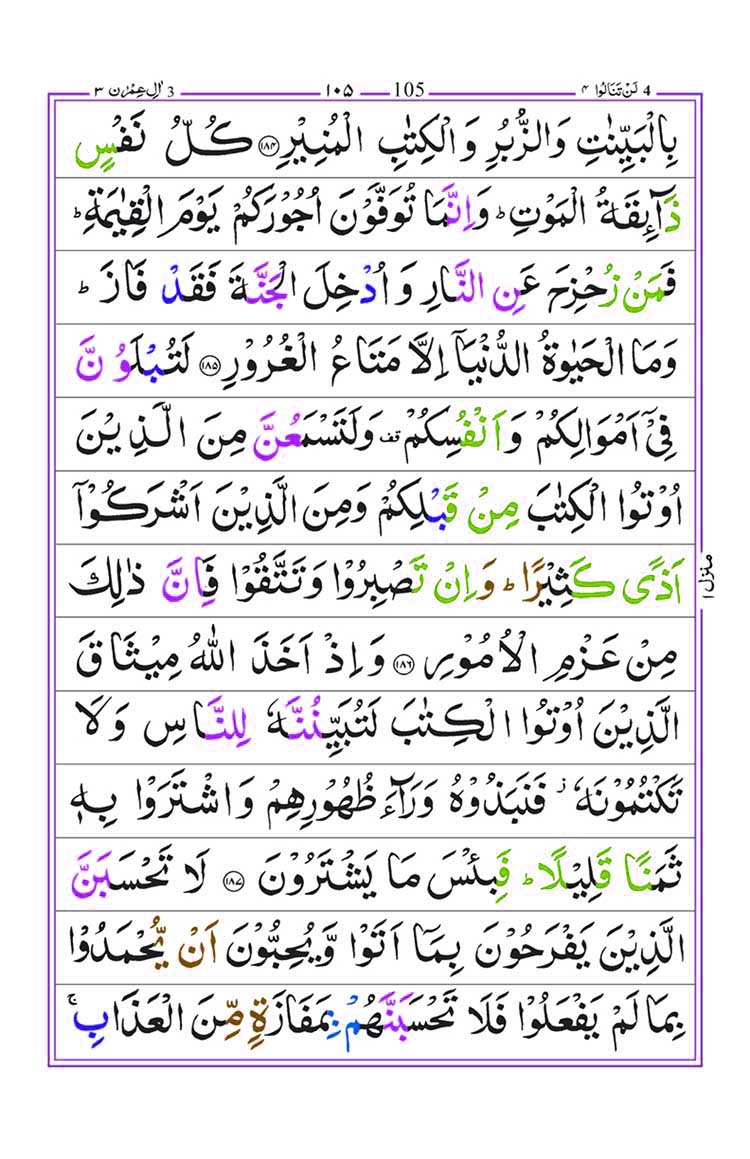 3 اٰلِ عِمْرٰن ٣ ١٠٥ 105 4 لَنْ تَنَالُوا ٤
بِالْبَيِّنٰتِ وَالزُّبُرِ وَالْكِتٰبِ الْمُنِيْرِ ۝١٨٤ كُلُّ نَفْسٍ
ذَآئِقَةُ الْمَوْتِ ؕ وَاِنَّمَا تُوَفَّوْنَ اُجُوْرَكُمْ يَوْمَ الْقِيٰمَةِ ؕ
فَمَنْ زُحْزِحَ عَنِ النَّارِ وَاُدْخِلَ الْجَنَّةَ فَقَدْ فَازَ ؕ
وَمَا الْحَيٰوةُ الدُّنْيَآ اِلَّا مَتَاعُ الْغُرُوْرِ ۝١٨٥ لَتُبْلَوُنَّ
فِيْۤ اَمْوَالِكُمْ وَاَنْفُسِكُمْ قف وَلَتَسْمَعُنَّ مِنَ الَّذِيْنَ
اُوْتُوا الْكِتٰبَ مِنْ قَبْلِكُمْ وَمِنَ الَّذِيْنَ اَشْرَكُوْۤا
اَذًى كَثِيْرًا ؕ وَاِنْ تَصْبِرُوْا وَتَتَّقُوْا فَاِنَّ ذٰلِكَ
منزل ١
مِنْ عَزْمِ الْاُمُوْرِ ۝١٨٦ وَاِذْ اَخَذَ اللّٰهُ مِيْثَاقَ
الَّذِيْنَ اُوْتُوا الْكِتٰبَ لَتُبَيِّنُنَّهٗ لِلنَّاسِ وَلَا
تَكْتُمُوْنَهٗ ز فَنَبَذُوْهُ وَرَآءَ ظُهُوْرِهِمْ وَاشْتَرَوْا بِهٖ
ثَمَنًا قَلِيْلًا ؕ فَبِئْسَ مَا يَشْتَرُوْنَ ۝١٨٧ لَا تَحْسَبَنَّ
الَّذِيْنَ يَفْرَحُوْنَ بِمَاۤ اَتَوْا وَّيُحِبُّوْنَ اَنْ يُّحْمَدُوْا
بِمَا لَمْ يَفْعَلُوْا فَلَا تَحْسَبَنَّهُمْ بِمَفَازَةٍ مِّنَ الْعَذَابِ ۚ